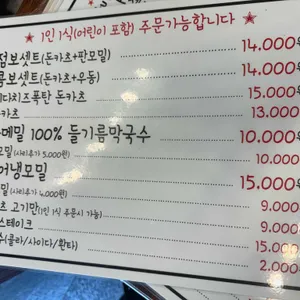 ★ 1인 1식(어린이 포함) 주문가능합니다 ★
점보셋트(돈카츠+판모밀) 14.000원
콤보셋트(돈카츠+우동) 14.000원
다치즈폭탄 돈카츠 15.000원
카츠 13.000
메밀 100% 들기름막국수 10.000원
모밀(사리추가 5.000원) 10.000
어냉모밀 15.000원
밀(사리추가 6.000원)
츠 고기만(1인 1식 주문시 가능) 9.000
스테이크 9.000
수(콜라/사이다/환타) 15.000
2.000